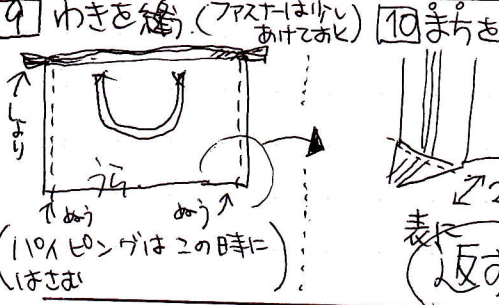 9 わきを縫う(ファスナーは少し
あけておく)
しつけ
うら
ぬう ぬう
(パイピングはこの時に
はさむ)
10 まちを
表に
(返す